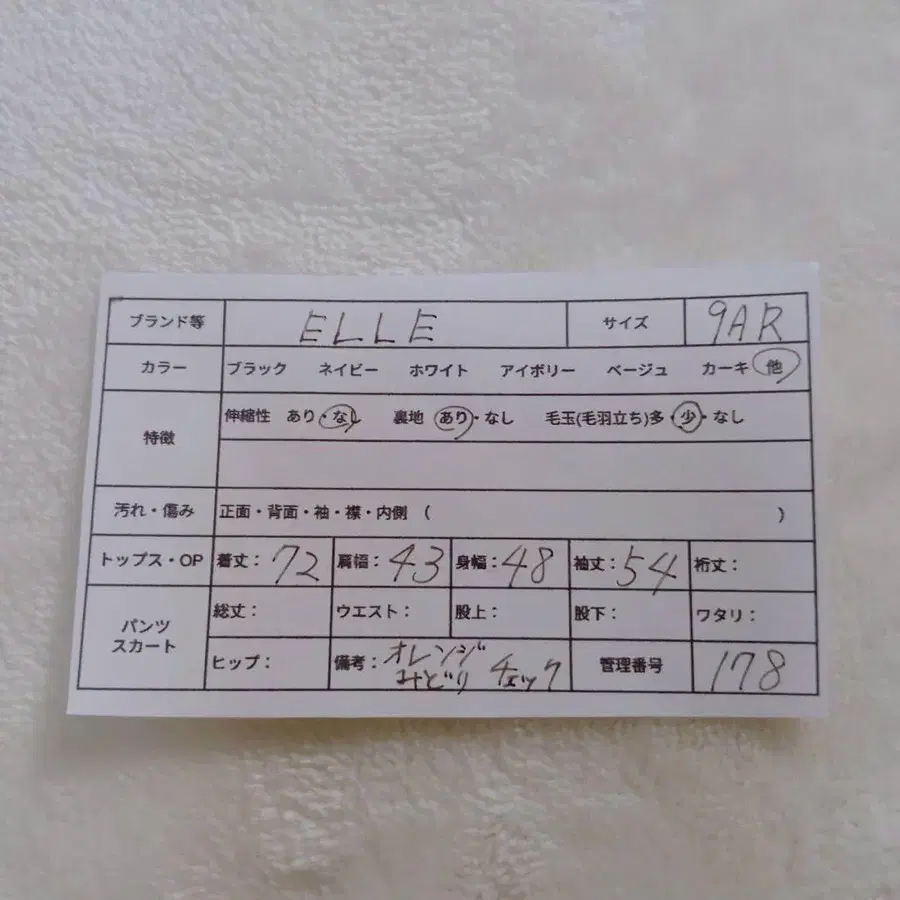 ブランド等 ELLE サイズ 9AR
カラー ブラック ネイビー ホワイト アイボリー ベージュ カーキ 他
特徴 伸縮性 あり・なし 裏地 あり・なし 毛玉(毛羽立ち)多・少・なし
汚れ・傷み 正面・背面・袖・襟・内側 ( )
トップス・OP 着丈: 72 肩幅: 43 身幅: 48 袖丈: 54 裄丈:
パンツ スカート 総丈: ウエスト: 股上: 股下: ワタリ:
ヒップ: 備考: オレンジ みどり チェック 管理番号 178